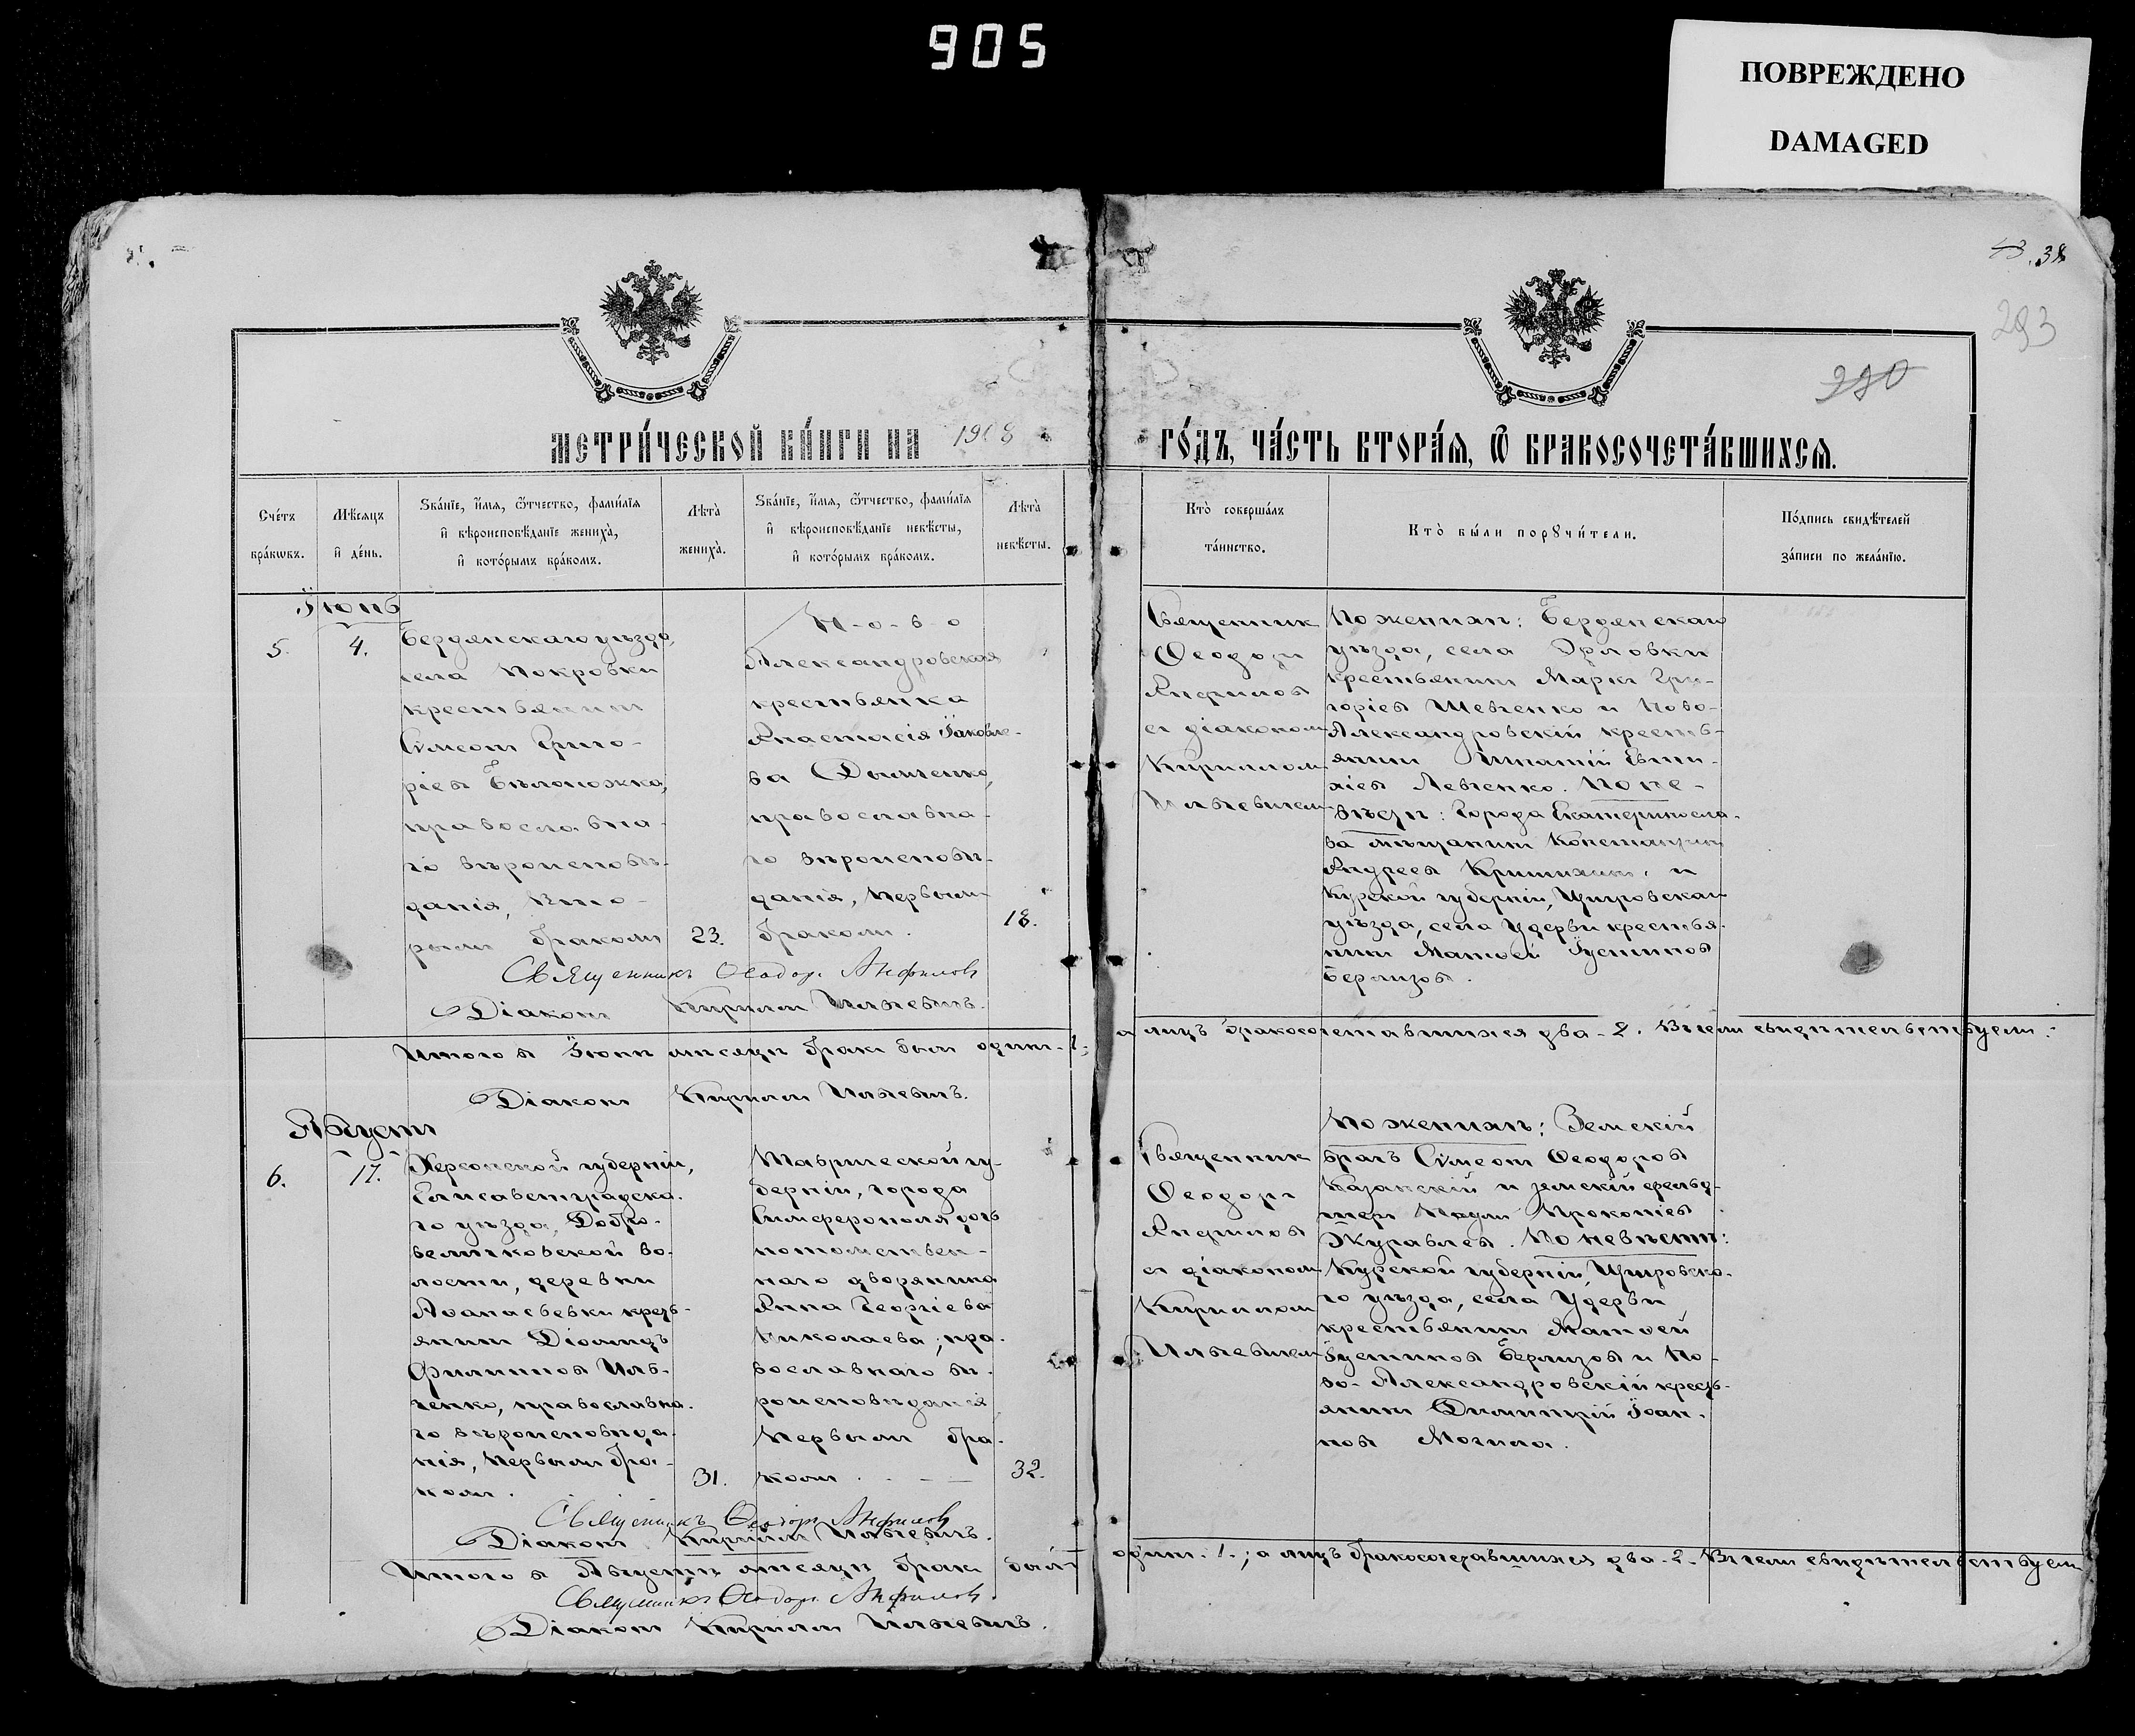 905
ПОВРЕЖДЕНО
DAMAGED
38
293
280
МЕТРИ́ЧЕСКОЙ КНИ́ГИ НА 1908
ГО́ДЪ, ЧА́СТЬ ВТОРА́Я, Ѿ БРАКОСОЧЕТА́ВШИХСЯ.
Сче́тъ бра́кѡвъ.
Мѣ́сяцъ и де́нь.
Зва́нїе, и́мя, ѻ́тчество, фами́лїя
и вѣроисповѣ́данїе жениха̀,
и кото́рымъ бра́комъ.
Лѣта̀ жениха̀.
Зва́нїе, и́мя, ѻ́тчество, фами́лїя
и вѣроисповѣ́данїе невѣ́сты,
и кото́рымъ бра́комъ.
Лѣта̀ невѣ́сты.
Кто̀ соверша́лъ
та́инство.
Кто̀ бы́ли порꙋчи́тели.
По́дпись свидѣ́телей
за́писи по жела́нїю.
Іюнь
5.
4.
Бердянскаго уѣзда,
села Покровки
крестьянинъ
Сѵмеонъ Григо-
ріевъ Бѣлоножко,
православна-
го вѣроисповѣ-
данія, вто-
рымъ бракомъ
23.
Н-о-в-о
Александровская
крестьянка
Анастасія Іаковле-
ва Дымченко,
православна-
го вѣроисповѣ-
данія, первымъ
бракомъ.
18.
Священникъ
Ѳеодоръ
Анфиловъ
съ діакономъ
Кирилломъ
Ильевичемъ
По женихѣ: Бердянскаго
уѣзда, села Орловки
крестьянинъ Маркъ Гри-
горіевъ Шевченко и Ново-
Александровскій кресть-
янинъ Игнатій Евти-
хіевъ Левченко. По не-
вѣстѣ: Города Екатериносла-
ва мѣщанинъ Константинъ
Андреевъ и
Курской губерніи, Щигровскаго
уѣзда, села Удерви крестья-
нинъ Матѳей Іустиновъ
Берлизовъ.
Священникъ Ѳеодоръ Анфиловъ
Діаконъ Кириллъ Ильевичъ.
Итого въ Іюнѣ мѣсяцѣ бракъ былъ одинъ-1;
а лицъ бракосочетавшихся два-2. Въ чемъ свидѣтельствуемъ:
Діаконъ Кириллъ Ильевичъ.
Августъ
6.
17.
Херсонской губерніи,
Елисаветградска-
го уѣзда, Добро-
величковской во-
лости, деревни
Аѳанасьевки кресть-
янинъ Діомидъ
Филипповъ Иль-
ченко, православна-
го вѣроисповѣда-
нія, первымъ бра-
комъ.
31.
Таврической гу-
берніи, города
Симферополя дочь
потомствен-
наго дворянина
Анна Георгіева
Николаева, пра-
вославнаго вѣ-
роисповѣданія
первымъ бра-
комъ.
32.
Священникъ
Ѳеодоръ
Анфиловъ
съ діакономъ
Кирилломъ
Ильевичемъ
По женихѣ: Земскій
врачъ Сѵмеонъ Ѳеодоровъ
Казанскій и земскій фельд-
шеръ Павелъ Прокопіевъ
Журавлевъ. По невѣстѣ:
Курской губерніи, Щигровска-
го уѣзда, села Удерви
крестьянинъ Матѳей
Іустиновъ Берлизовъ и Но-
во-Александровскій кресть-
янинъ Димитрій Іоан-
новъ Могила.
Священникъ Ѳеодоръ Анфиловъ
Діаконъ Кириллъ Ильевичъ.
Итого въ Августѣ мѣсяцѣ бракъ былъ
одинъ-1.; а лицъ бракосочетавшихся два-2. Въ чемъ свидѣтельствуемъ
Священникъ Ѳеодоръ Анфиловъ
Діаконъ Кириллъ Ильевичъ.